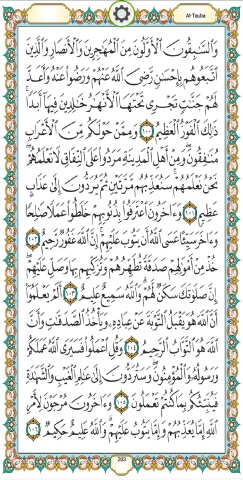 At-Tauba
وَٱلسَّـٰبِقُونَ ٱلْأَوَّلُونَ مِنَ ٱلْمُهَـٰجِرِينَ وَٱلْأَنصَارِ وَٱلَّذِينَ
ٱتَّبَعُوهُم بِإِحْسَـٰنٍ رَّضِىَ ٱللَّهُ عَنْهُمْ وَرَضُوا۟ عَنْهُ وَأَعَدَّ
لَهُمْ جَنَّـٰتٍ تَجْرِى تَحْتَهَا ٱلْأَنْهَـٰرُ خَـٰلِدِينَ فِيهَآ أَبَدًا ۚ
ذَٰلِكَ ٱلْفَوْزُ ٱلْعَظِيمُ ١٠٠ وَمِمَّنْ حَوْلَكُم مِّنَ ٱلْأَعْرَابِ
مُنَـٰفِقُونَ ۖ وَمِنْ أَهْلِ ٱلْمَدِينَةِ ۖ مَرَدُوا۟ عَلَى ٱلنِّفَاقِ لَا تَعْلَمُهُمْ ۖ
نَحْنُ نَعْلَمُهُمْ ۚ سَنُعَذِّبُهُم مَّرَّتَيْنِ ثُمَّ يُرَدُّونَ إِلَىٰ عَذَابٍ
عَظِيمٍ ١٠١ وَءَاخَرُونَ ٱعْتَرَفُوا۟ بِذُنُوبِهِمْ خَلَطُوا۟ عَمَلًا صَـٰلِحًا
وَءَاخَرَ سَيِّئًا عَسَى ٱللَّهُ أَن يَتُوبَ عَلَيْهِمْ ۚ إِنَّ ٱللَّهَ غَفُورٌ رَّحِيمٌ ١٠٢
خُذْ مِنْ أَمْوَٰلِهِمْ صَدَقَةً تُطَهِّرُهُمْ وَتُزَكِّيهِم بِهَا وَصَلِّ عَلَيْهِمْ ۖ
إِنَّ صَلَوٰتَكَ سَكَنٌ لَّهُمْ ۗ وَٱللَّهُ سَمِيعٌ عَلِيمٌ ١٠٣ أَلَمْ يَعْلَمُوٓا۟
أَنَّ ٱللَّهَ هُوَ يَقْبَلُ ٱلتَّوْبَةَ عَنْ عِبَادِهِۦ وَيَأْخُذُ ٱلصَّدَقَـٰتِ وَأَنَّ
ٱللَّهَ هُوَ ٱلتَّوَّابُ ٱلرَّحِيمُ ١٠٤ وَقُلِ ٱعْمَلُوا۟ فَسَيَرَى ٱللَّهُ عَمَلَكُمْ
وَرَسُولُهُۥ وَٱلْمُؤْمِنُونَ ۖ وَسَتُرَدُّونَ إِلَىٰ عَـٰلِمِ ٱلْغَيْبِ وَٱلشَّهَـٰدَةِ
فَيُنَبِّئُكُم بِمَا كُنتُمْ تَعْمَلُونَ ١٠٥ وَءَاخَرُونَ مُرْجَوْنَ لِأَمْرِ
ٱللَّهِ إِمَّا يُعَذِّبُهُمْ وَإِمَّا يَتُوبُ عَلَيْهِمْ ۗ وَٱللَّهُ عَلِيمٌ حَكِيمٌ ١٠٦
203